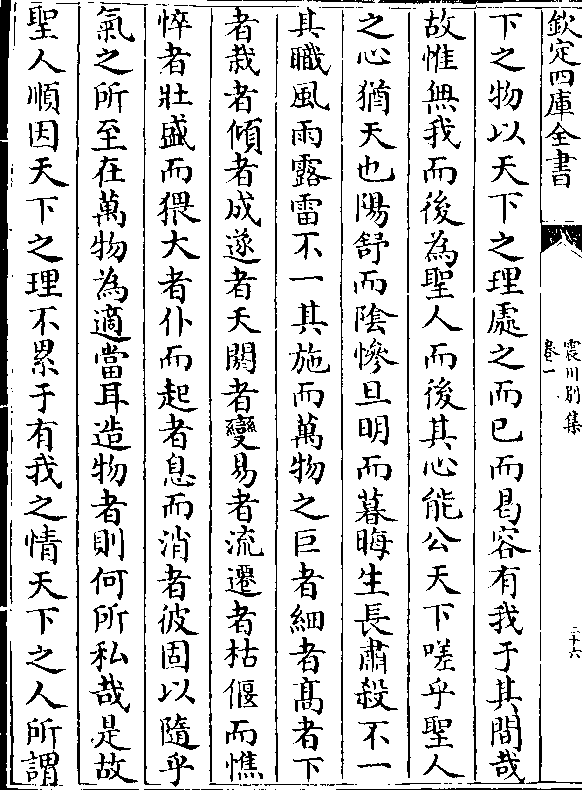 欽定四庫全書
震川別集
卷一
三十六
下之物以天下之理處之而已而曷容有我于其間哉
故惟無我而後為聖人而後其心能公天下嗟乎聖人
之心猶天也陽舒而陰慘旦明而暮晦生長肅殺不一
其職風雨露雷不一其施而萬物之巨者細者高者下
者栽者傾者成遂者夭閼者變易者流遷者枯偃而憔
悴者壯盛而猥大者仆而起者息而消者彼固以隨乎
氣之所至在萬物為適當耳造物者則何所私哉是故
聖人順因天下之理不累于有我之情天下之人所謂